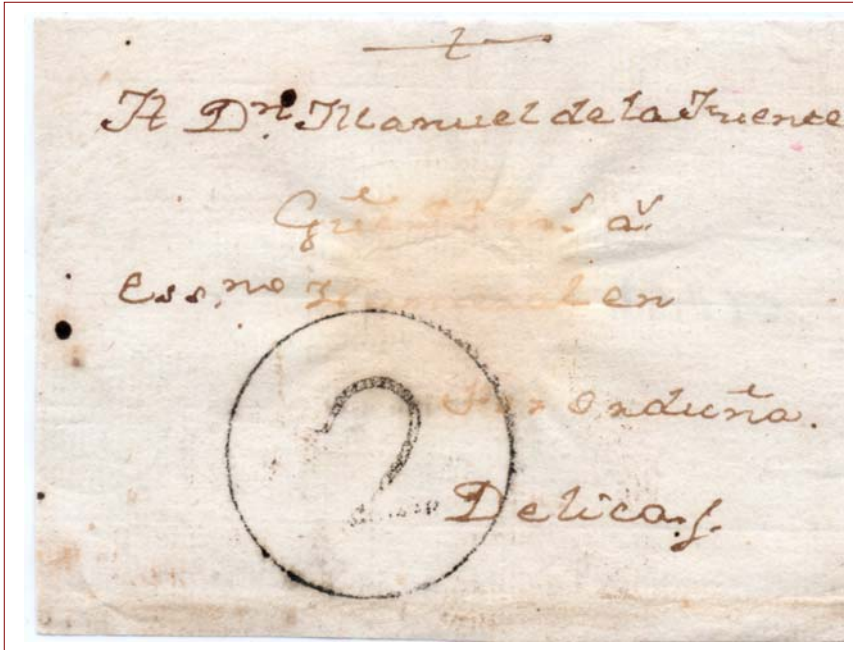 A Dn. Manuel de la Fuente
Essno en
Por Orduña.
2
Delica